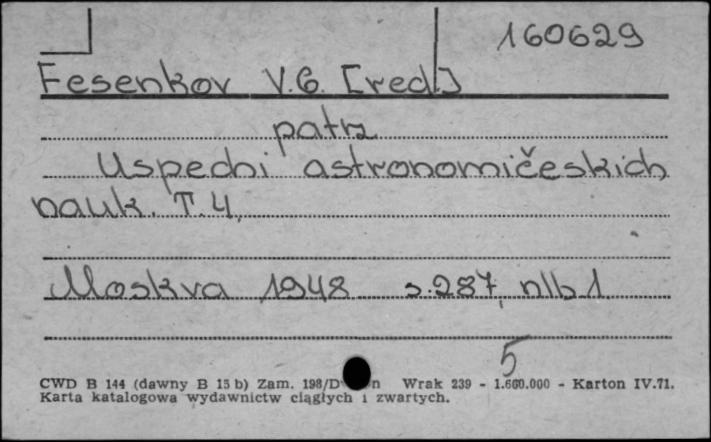 160629
Fesenkov V.G. [red.]
patrz
Uspechi astronomičeskich
nauk. T. 4.
Moskva 1948 s. 287, nlb 1
5
CWD B 144 (dawny B 15 b) Zam. 198/D n Wrak 239 - 1.660.000 - Karton IV.71.
Karta katalogowa wydawnictw ciągłych i zwartych.